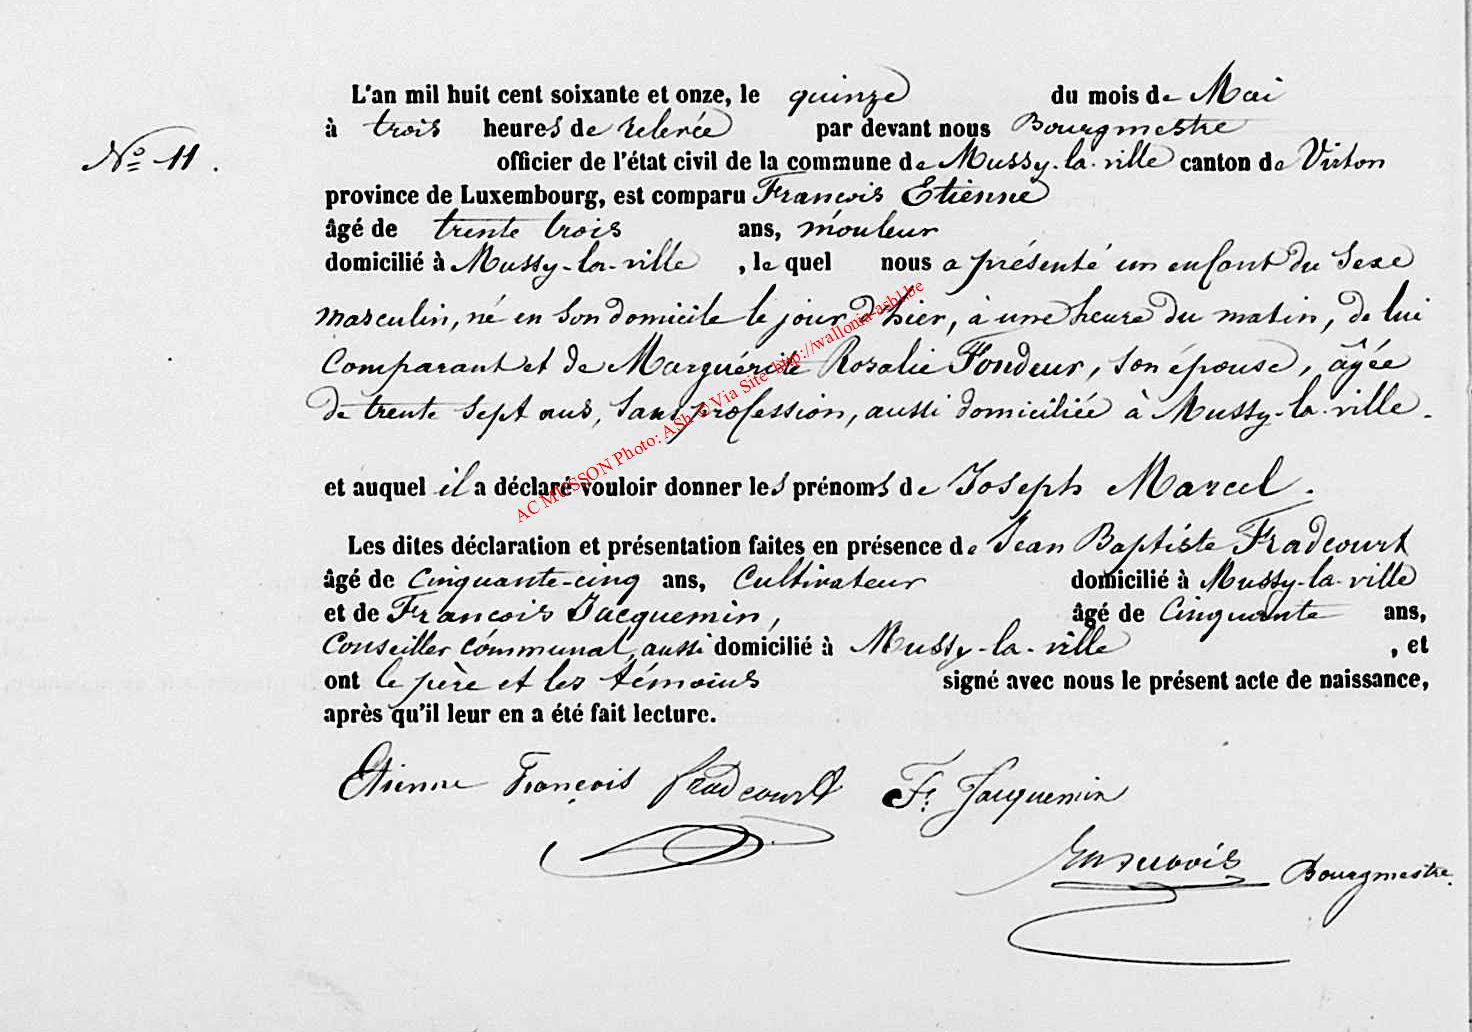 L'an mil huit cent soixante et onze, le quinze du mois de Mai
à trois heures de relevée par devant nous Bourgmestre
N° 11.
officier de l'état civil de la commune de Mussy-la-ville canton de Virton
province de Luxembourg, est comparu François Etienne
âgé de trente trois ans, mouleur
domicilié à Mussy-la-ville, le quel nous a présenté un enfant du sexe
masculin, né en son domicile le jour d'hier, à une heure du matin, de lui
comparant et de Marguérite Rosalie Fondeur, son épouse, âgée
de trente sept ans, sans profession, aussi domiciliée à Mussy-la-ville.
et auquel il a déclaré vouloir donner les prénoms de Joseph Marcel.
Les dites déclaration et présentation faites en présence de Jean Baptiste Fradcourt
âgé de cinquante-cinq ans, cultivateur domicilié à Mussy-la-ville
et de François Jacquemin, âgé de cinquante ans,
conseiller communal, aussi domicilié à Mussy-la-ville, et
ont le père et les témoins signé avec nous le présent acte de naissance,
après qu'il leur en a été fait lecture.
Etienne François Fradcourt Fs Jacquemin
Bourgmestre.
AC MUSSON Photo: ASh © Via Site http://wallonia-asbl.be